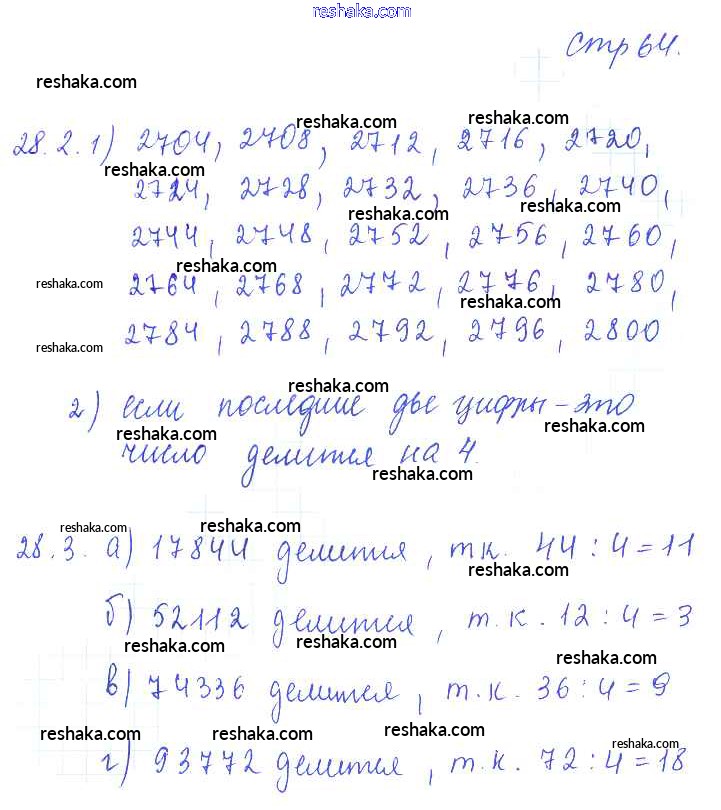 reshaka.com
стр 64.
reshaka.com
reshaka.com reshaka.com
28.2. 1) 2704, 2708, 2712, 2716, 2720,
reshaka.com
2724, 2728, 2732, 2736, 2740,
reshaka.com reshaka.com
2744, 2748, 2752, 2756, 2760,
reshaka.com
reshaka.com 2764, 2768, 2772, 2776, 2780,
reshaka.com
2784, 2788, 2792, 2796, 2800
reshaka.com
reshaka.com
2) если последние две цифры - это
reshaka.com reshaka.com
число делится на 4.
reshaka.com
reshaka.com reshaka.com
28.3. а) 17844 делится, т.к. 44 : 4 = 11
reshaka.com
б) 52112 делится, т.к. 12 : 4 = 3
reshaka.com reshaka.com
в) 74336 делится, т.к. 36 : 4 = 9
reshaka.com reshaka.com reshaka.com
reshaka.com
г) 93772 делится, т.к. 72 : 4 = 18